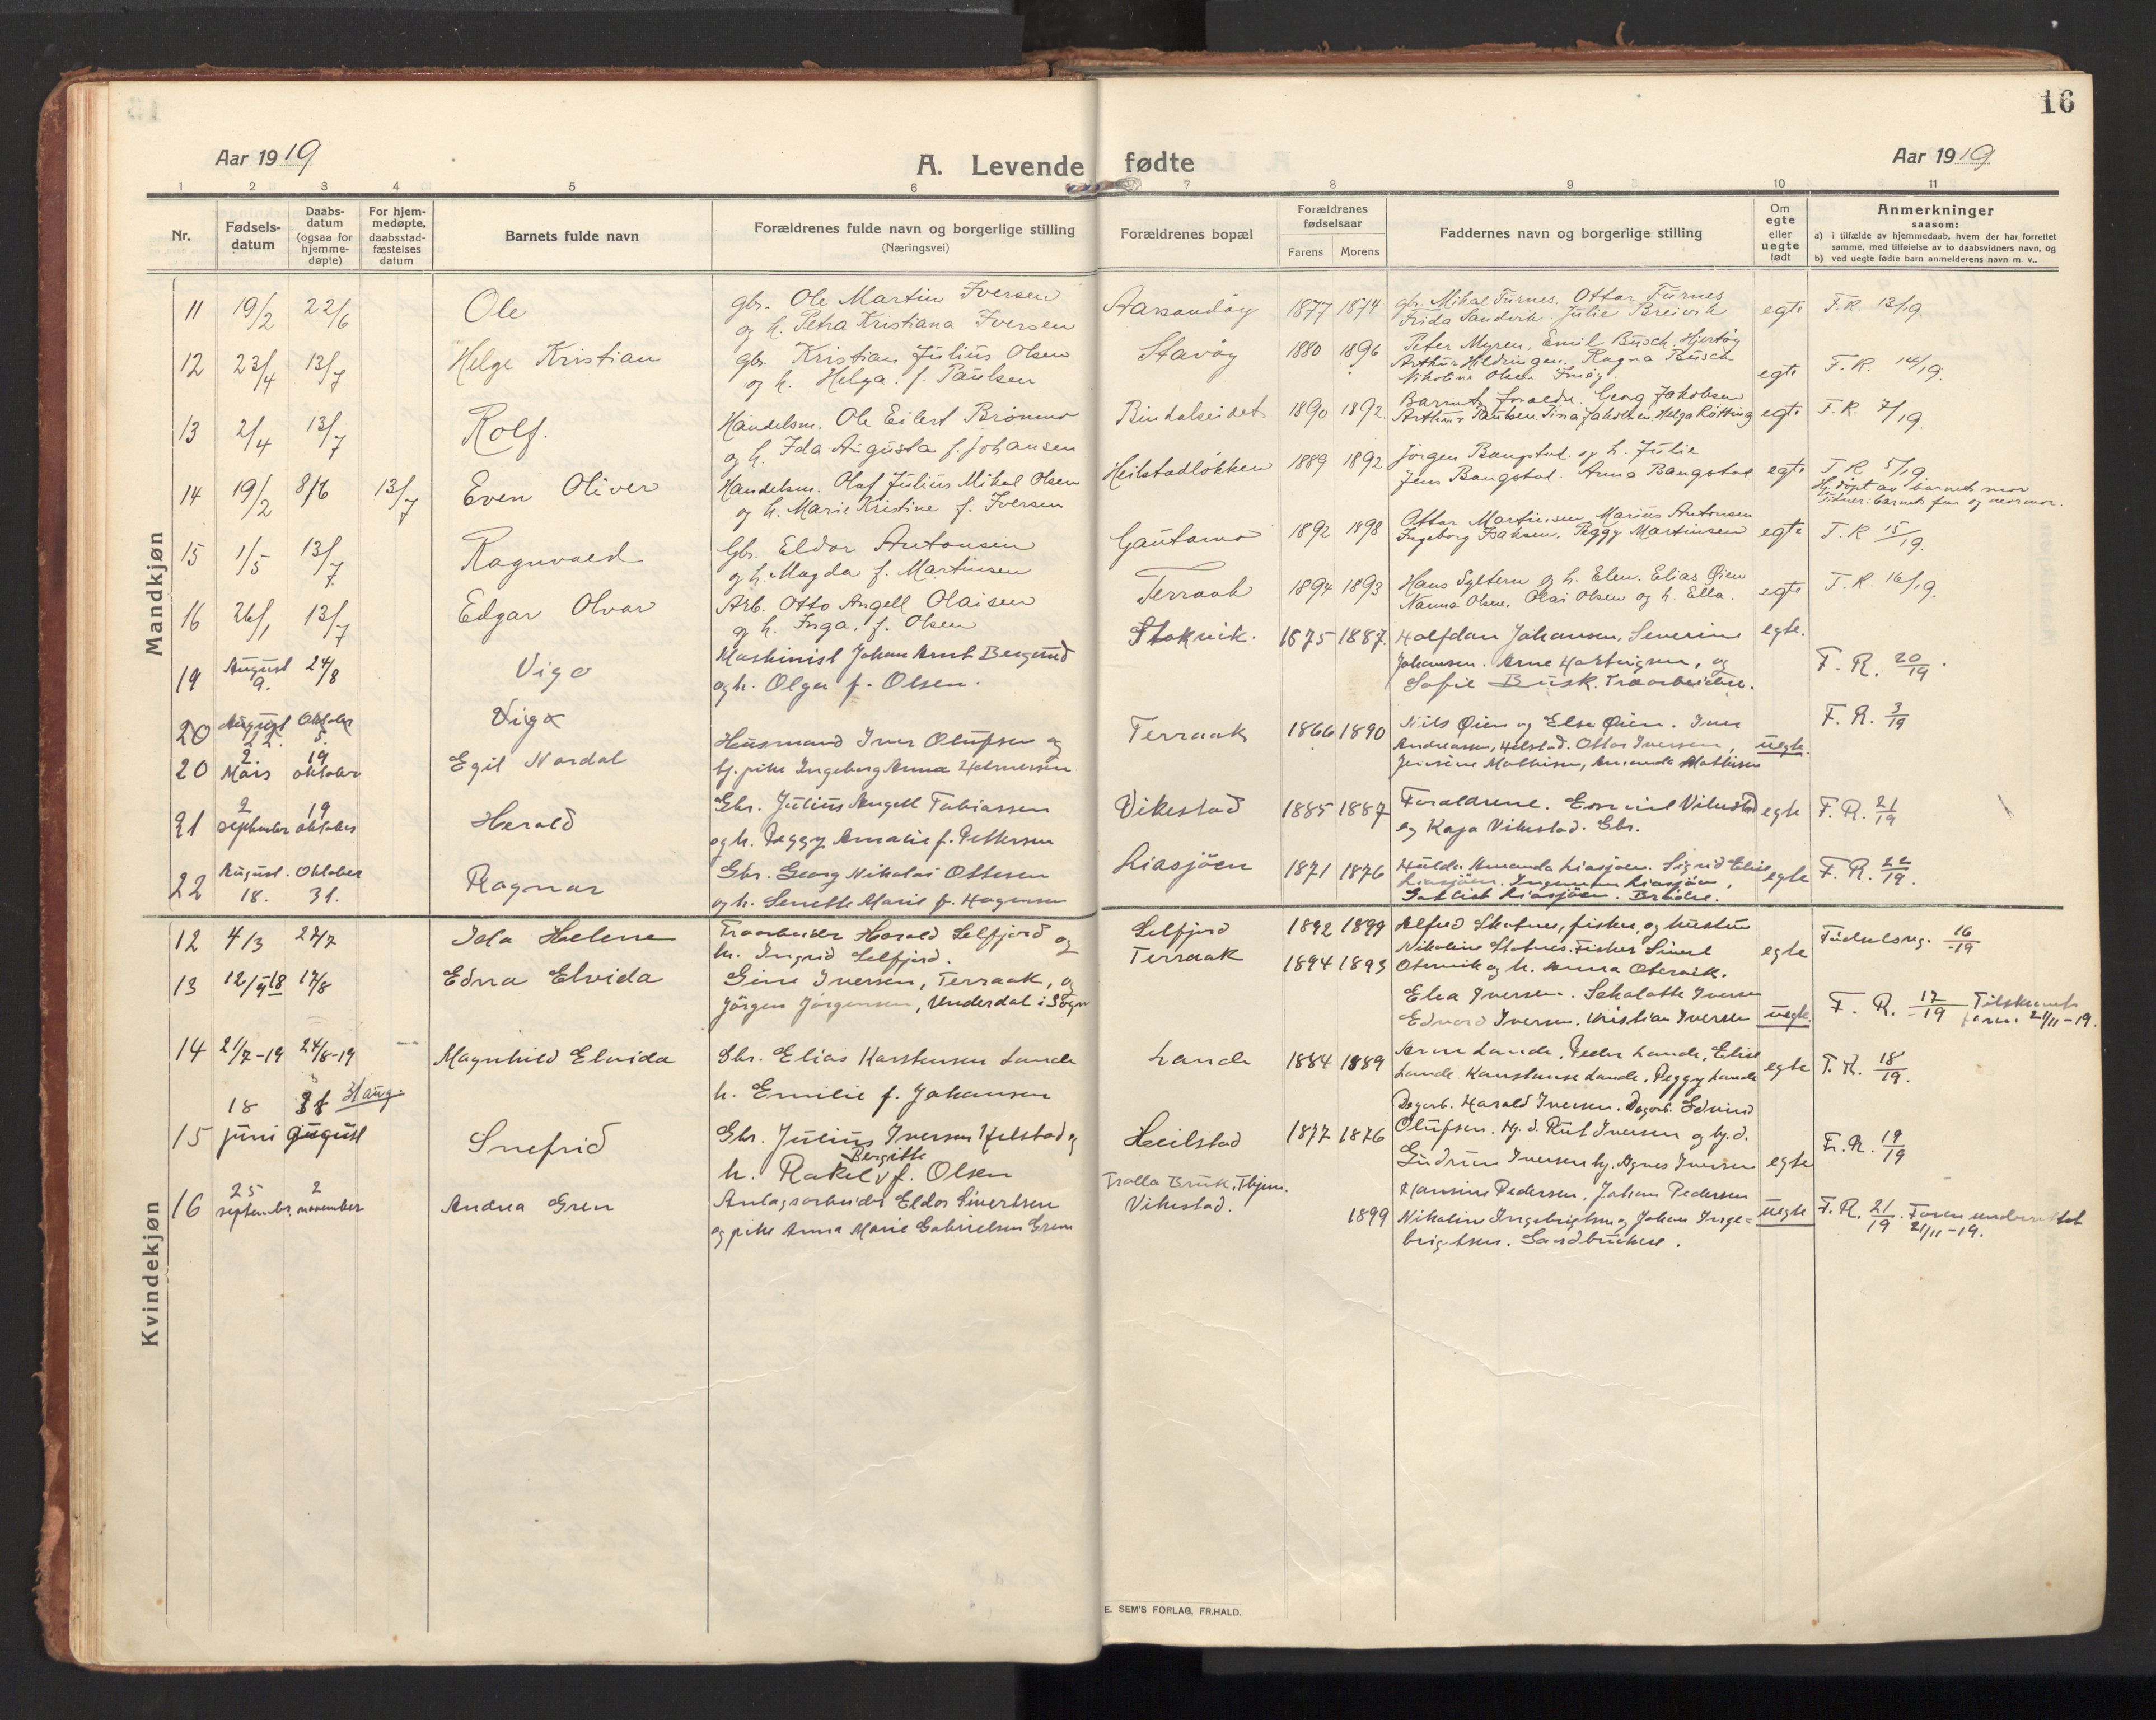 16
Aar 1919
A. Levende fødte
Aar 1919
1 2 3 4 5 6 7 8 9 10 11
Nr.
Fødsels-
datum
Daabs-
datum
(ogsaa for
hjemme-
døpte)
For hjem-
medøpte,
daabsstad-
fæstelses
datum
Barnets fulde navn
Forældrenes fulde navn og borgerlige stilling
(Næringsvei)
Forældrenes bopæl
Forældrenes
fødselsaar
Farens Morens
Faddernes navn og borgerlige stilling
Om
egte
eller
uegte
født
Anmerkninger
saasom:
a) i tilfælde av hjemmedaab, hvem der har forrettet
samme, med tilføielse av to daabsvidners navn, og
b) ved uegte fødte barn anmelderens navn m. v..
Mandkjøn
11 19/2 22/6 Ole
gbr. Ole Martin Iversen
og h. Petra Kristiana Iversen
Aarsandøy 1877 1874
gbr. Mikal Furnes. Ottar Furnes
Frida Sandvik. Julie Breivik
egte F.R. 13/19.
12 23/4 13/7 Helge Kristian
gbr. Kristian Julius Olsen
og h. Helga. f. Paulsen
Stavøy 1880 1896
Peter Myren, Emil Busch. Hjortøy
Arthur Hildringen. Ragna Busch
Nikoline Olsen
egte F.R. 14/19.
13 2/4 13/7 Rolf.
Handelsm. Ole Eilert Brönmo
og h. Ida Augusta f. Johansen
Bindalseidet 1890 1892
Barnets foreldr. Georg Jakobsen
Arthur Paulsen. Jakobsen. Helga Røtting
egte F.R. 7/19.
14 19/2 8/6 13/7 Even Oliver
Handelsm. Olaf Julius Mikal Olsen
og h. Marie Kristine f. Iversen
Heilstadløkken 1889 1892
Jørgen Bangstad og h. Julie
Jens Bangstad. Anna Bangstad
egte F.R. 5/19.
Hj. døpt av barnets mor
Vidner: barnets far og mormor.
15 1/5 13/7 Ragnvald
Gbr. Eldor Antonsen
og h. Magda f. Martinsen
Gautamo 1892 1898
Ottar Martinsen, Marius Antonsen
Ingeborg Isaksen. Peggy Martinsen
egte F.R 15/19.
16 26/1 13/7 Edgar Olvar
Arb. Otto Angell Olaisen
og h. Inga. f. Olsen
Terraak 1894 1893
Hans Sylteren og h. Elen. Elias Øien
Nanna Olsen. Olai Olsen og h. Ella.
egte F.R. 16/19.
19 August 9. 24/8 Vigo
Maskinist Johan Arnt Bergund
og h. Olga f. Olsen.
Stokvik. 1875 1887.
Halfdan Johansen, Severine
Johansen. Arne Hartvigsen, og
Sofie Busk. Træarbeidere.
egte. F.R. 20/19.
20 August 22. Oktober 5. Vigo
20 2 Mars 19 oktober Egil Nordal
Husmand Iver Olufsen og
tj. pike Ingeborg Anna Helmersen
Terraak 1866 1890
Nils Øien og Else Øien. Iver
Andreassen, Helstad. Ottar Iversen,
Jensine Mathisen, Amanda Mathisen
uegte. F.R. 3/19
21 2 september 19 oktober Harald
Gbr. Julius Angell Tobiassen
og h. Peggy Amalie f. Pettersen
Vikestad 1885 1887
Foraldrene. Emil Vikestad
og Kaja Vikestad. Gbr.
egte F.R. 21/19
22 August. 18. Oktober 31. Ragnar
Gbr. Georg Nikolai Ottesen
og h. Senette Marie f. Hagensen
Liasjöen 1871 1876
Hulda Amanda Liasjöen. Sigrid Elise
Liasjöen. Ingemann Liasjöen,
Gotlieb Liasjöen. Brødre.
egte F.R. 22/19.
Kvindekjøn
12 4/3 27/7 Ida Helene
Træarbeider Harald Selfjord og
h. Ingrid Selfjord.
Selfjord 1892 1899
Alfred Skotnes, fisker, og hustru
Nikoline Skotnes. Fisker Sivert
Otervik og h. Anna Otervik.
egte Födselsreg. 16/-19
13 12/9 18 17/8 Edna Elvida
Gine Iversen, Terraak, og
Jörgen Jörgensen, Underdal i Sogn
Terraak 1894 1893
Elea Iversen. Sehalotte Iversen
Edvard Iversen. Kristian Iversen
uegte. F.R. 17/-19 Tilskrevet
faren 21/11-19.
14 21/7-19 24/8-19 Magnhild Elvida
Gbr. Elias Karstensen Lande
h. Emilie f. Johansen
Lande 1884 1889
Arne Lande, Peder Lande, Elise
Lande Konstanse Lande. Peggy Lande
egte F.R. 18/19.
15 18 juni 31 august 31 aug. Snefrid
Gbr. Julius Iversen Helstad og
h. Rakel Bergitte f. Olsen
Heilstad 1877 1876
Dagarb. Harald Iversen. Dagarb. Edvind
Olufsen. Hj. d. Rut Iversen og hj. d.
Gudrun Iversen hj. Agnes Iversen
egte F.R. 19/19
16 25 september. 2 november Andrea Gren
Anlagsarbeider Eldor Sivertsen
og pike Anna Marie Gabrielsen Grem
Trolla Bruk, Thjem.
Vikestad. 1899
Hansine Pedersen, Johan Pedersen
Nikoline Ingebrigtsen og Johan Inge=
brigtsen. Gaardbrukere.
uegte F.R. 21/19. Faren underrettet
21/11-19.
E. SEM'S FORLAG, FR.HALD.